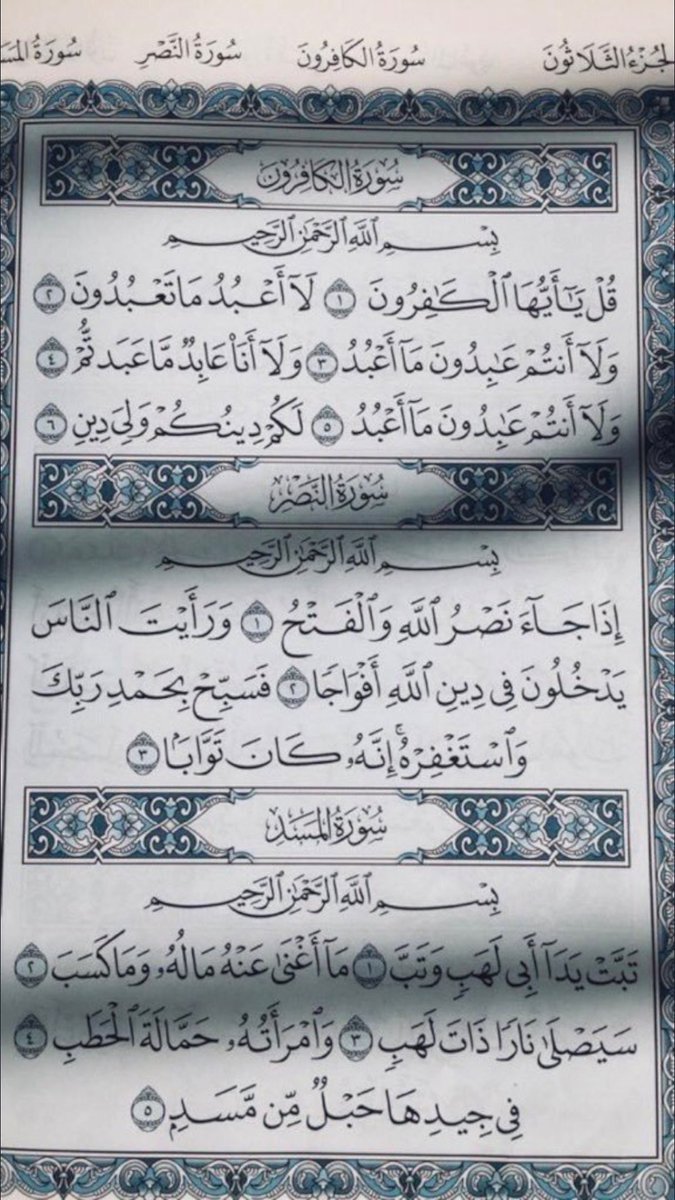 الجُزْءُ الثَّلَاثُونَ سُورَةُ الكَافِرُونَ سُورَةُ النَّصْرِ سُورَةُ المَسَ
سُورَةُ الكَافِرُونَ
بِسْمِ ٱللَّهِ ٱلرَّحْمَٰنِ ٱلرَّحِيمِ
قُلْ يَٰٓأَيُّهَا ٱلْكَٰفِرُونَ ١ لَآ أَعْبُدُ مَا تَعْبُدُونَ ٢
وَلَآ أَنتُمْ عَٰبِدُونَ مَآ أَعْبُدُ ٣ وَلَآ أَنَا۠ عَابِدٌ مَّا عَبَدتُّمْ ٤
وَلَآ أَنتُمْ عَٰبِدُونَ مَآ أَعْبُدُ ٥ لَكُمْ دِينُكُمْ وَلِىَ دِينِ ٦
سُورَةُ النَّصْرِ
بِسْمِ ٱللَّهِ ٱلرَّحْمَٰنِ ٱلرَّحِيمِ
إِذَا جَآءَ نَصْرُ ٱللَّهِ وَٱلْفَتْحُ ١ وَرَأَيْتَ ٱلنَّاسَ
يَدْخُلُونَ فِى دِينِ ٱللَّهِ أَفْوَاجًا ٢ فَسَبِّحْ بِحَمْدِ رَبِّكَ
وَٱسْتَغْفِرْهُ ۚ إِنَّهُۥ كَانَ تَوَّابًۢا ٣
سُورَةُ المَسَدِ
بِسْمِ ٱللَّهِ ٱلرَّحْمَٰنِ ٱلرَّحِيمِ
تَبَّتْ يَدَآ أَبِى لَهَبٍ وَتَبَّ ١ مَآ أَغْنَىٰ عَنْهُ مَالُهُۥ وَمَا كَسَبَ ٢
سَيَصْلَىٰ نَارًا ذَاتَ لَهَبٍ ٣ وَٱمْرَأَتُهُۥ حَمَّالَةَ ٱلْحَطَبِ ٤
فِى جِيدِهَا حَبْلٌ مِّن مَّسَدٍۭ ٥